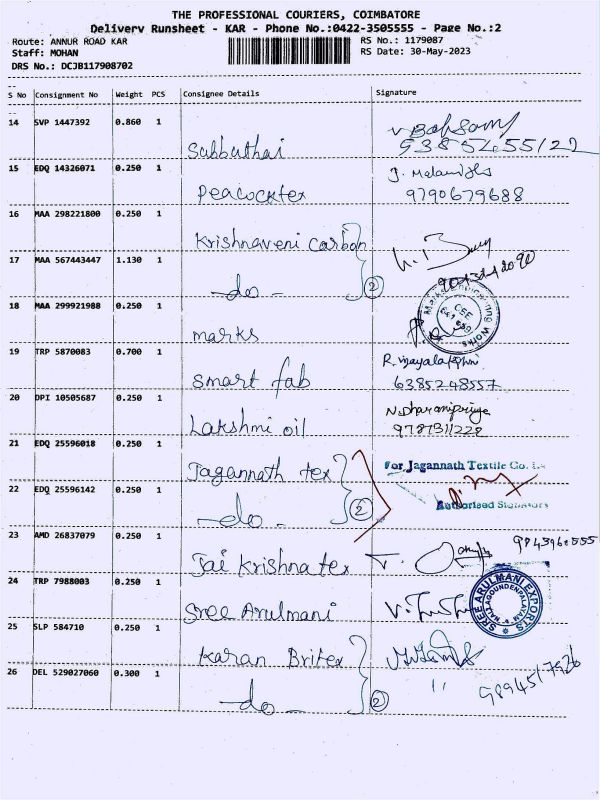 THE PROFESSIONAL COURIERS, COIMBATORE
Delivery Runsheet - KAR - Phone No.:0422-3505555 - Page No.:2
Route: ANNUR ROAD KAR
RS No.: 1179087
Staff: MOHAN
RS Date: 30-May-2023
DRS No.: DCJB117908702
S No Consignment No Weight PCS Consignee Details Signature
14 SVP 1447392 0.860 1
Sabbathai
15 EDQ 14326071 0.250 1
Peacocktex 9790679688
16 MAA 298221800 0.250 1
Krishnaveni Carbon
17 MAA 567443447 1.130 1
-do- 2
18 MAA 299921988 0.250 1
marks
19 TRP 5870083 0.700 1
R. Vijayalakshmi
Smart fab 6385248557
20 DPI 10505687 0.250 1
N. Dharanipriya
Lakshmi oil 9787311228
21 EDQ 25596018 0.250 1
Jagannath tex For Jagannath Textile Co.
22 EDQ 25596142 0.250 1
Authorised Signatory
-do- 2
23 AMD 26837079 0.250 1
Jai Krishna tex
24 TRP 7988003 0.250 1
Sree Arulmani
SREE ARULMANI EXPORTS
NALLAGOUNDENPALAYAM
25 SLP 584710 0.250 1
Karan Britex
26 DEL 529027060 0.300 1
-do- 2